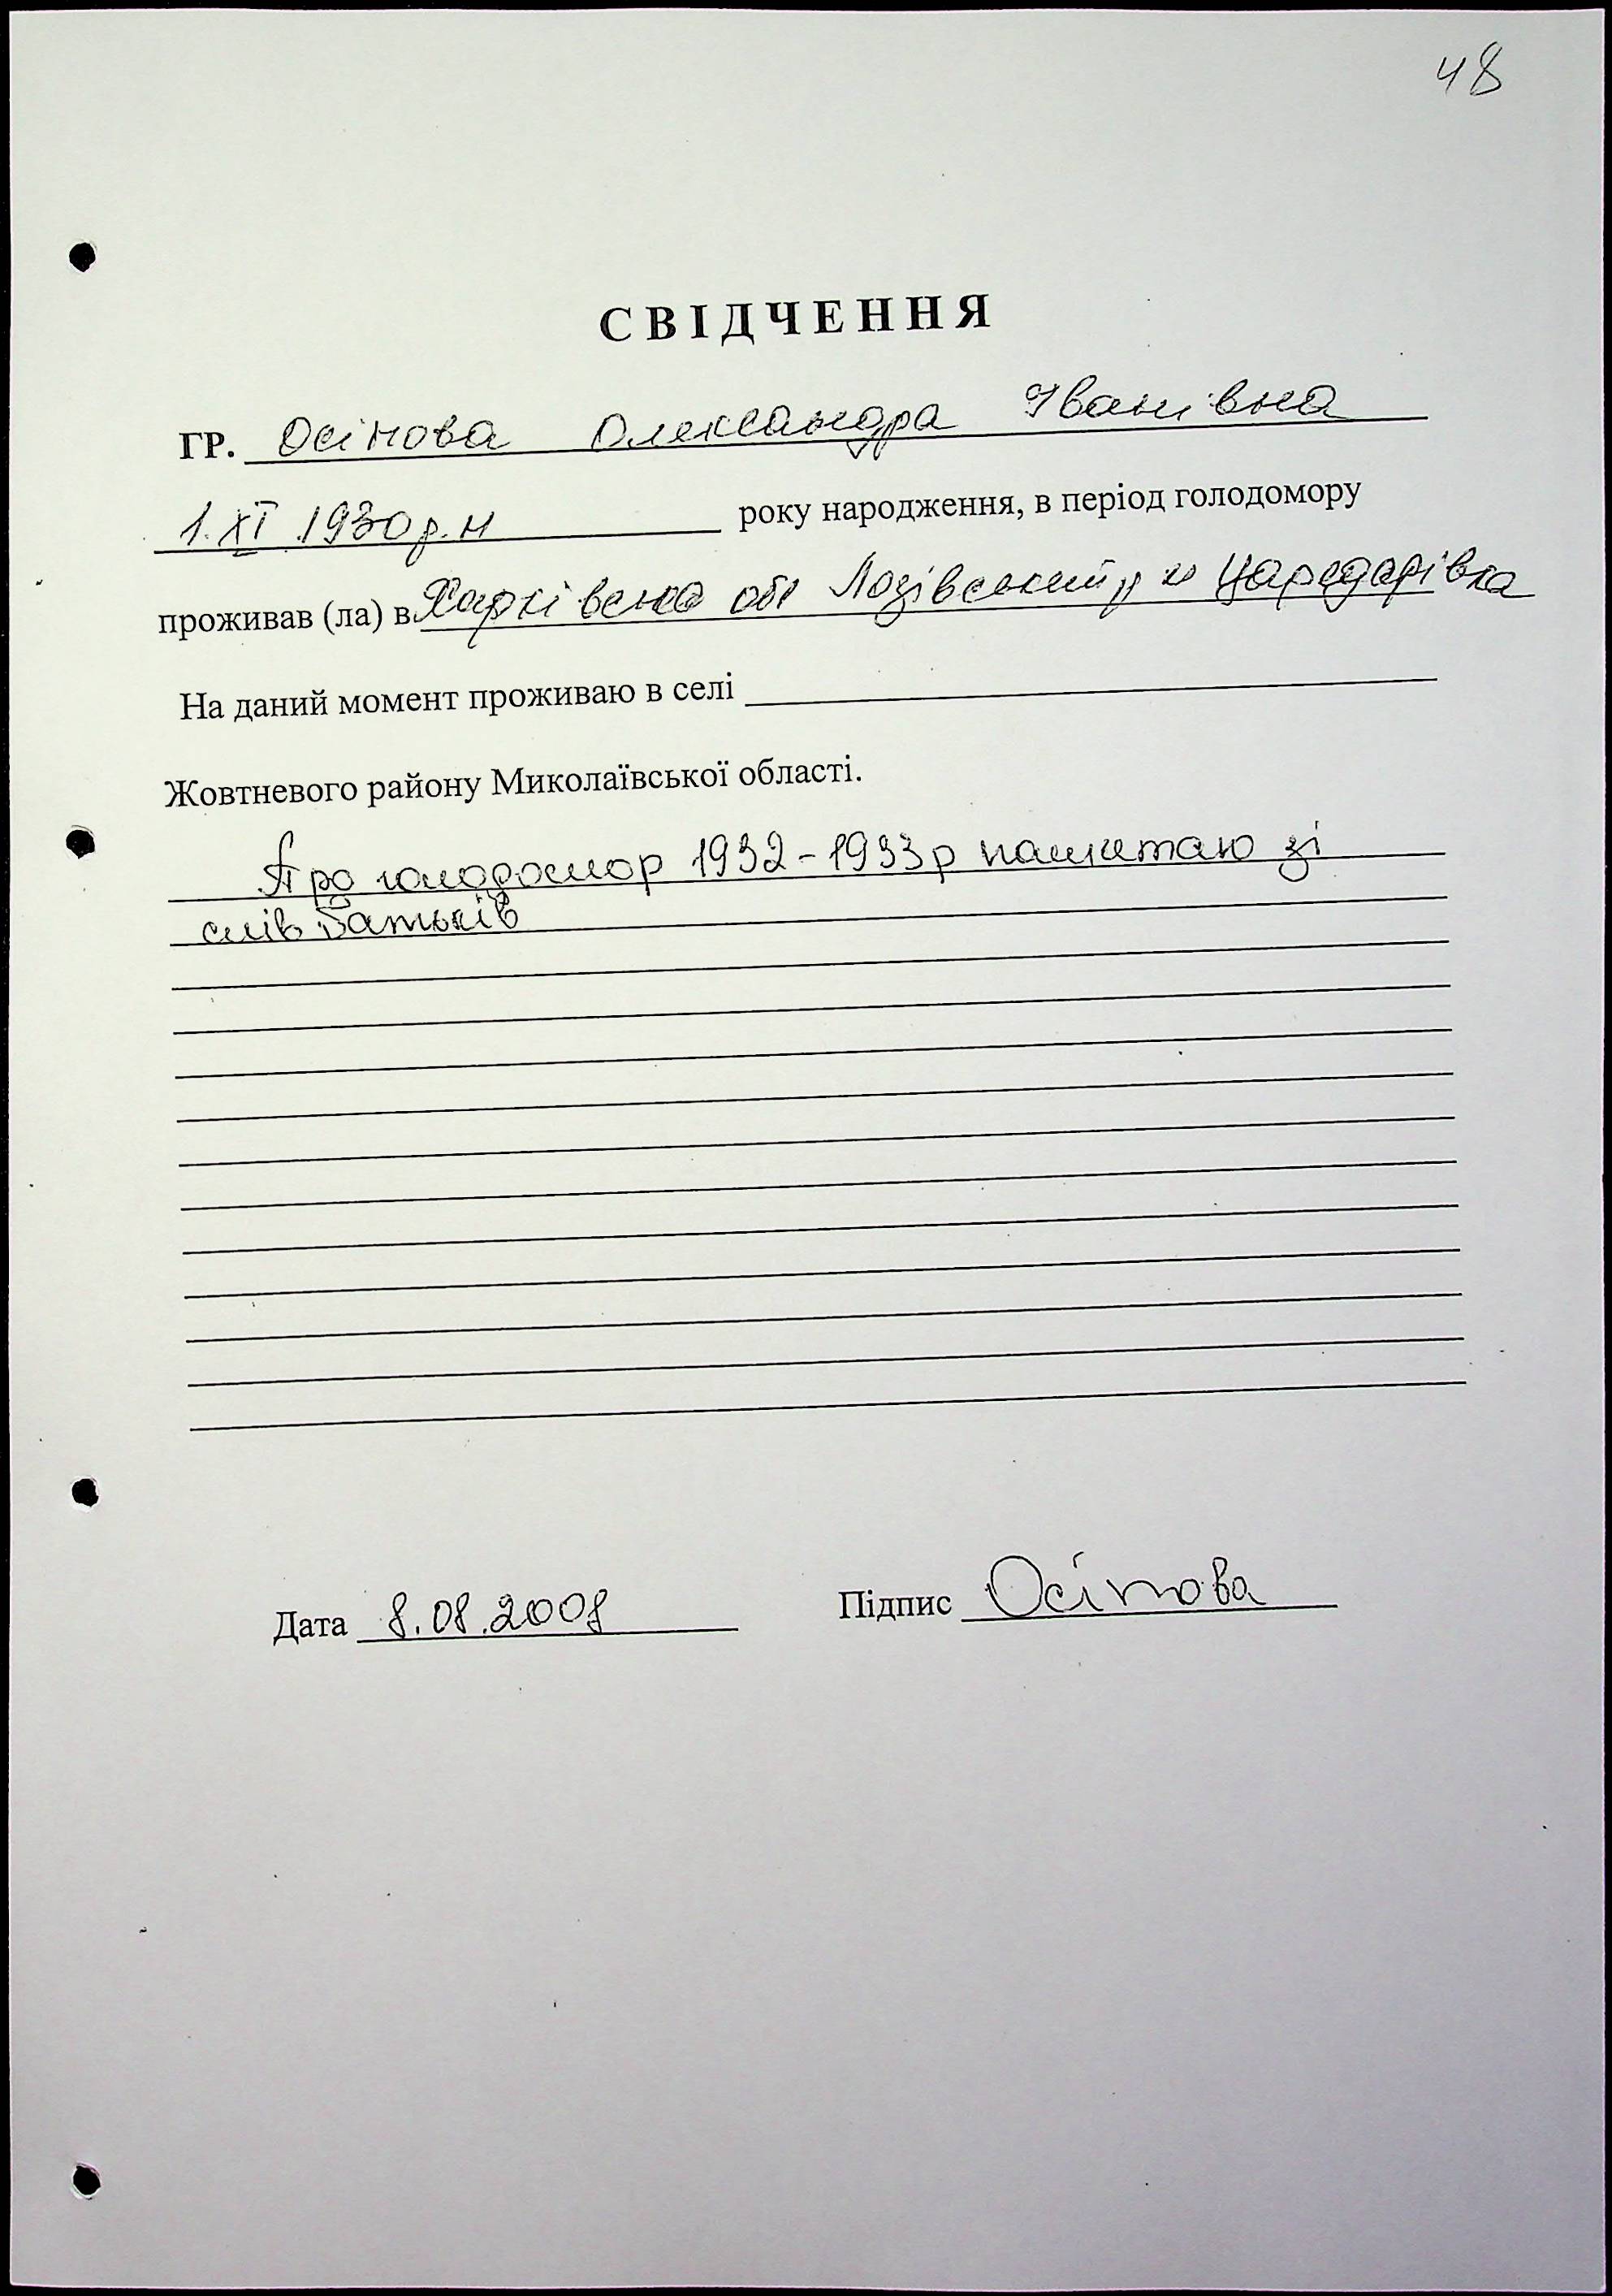 48
СВІДЧЕННЯ
ГР. Осіпова Олександра Іванівна
1.XI 1930 р.н року народження, в період голодомору
проживав (ла) в Харківська обл Лозівський р н Царедарівка
На даний момент проживаю в селі
Жовтневого району Миколаївської області.
Про голодомор 1932-1933р памятаю зі
слів батьків
Дата 8.08.2008 Підпис Осіпова